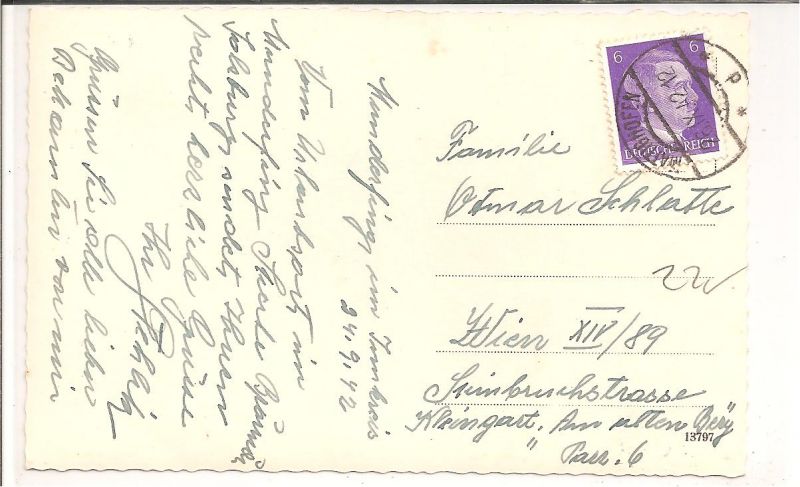 Munderfing, im Innkreis
24.9.42
Vom Urlaubsort in
Munderfing Strecke Braunau
Salzburg sendet Ihnen
recht herzliche Grüsse
Ihr
Grüssen Sie alle lieben
Bekannten von mir
6 6
DEUTSCHES REICH
Familie
Otmar Schlatte
22
Wien XIV/89
Steinbruchstrasse
Kleingart. Am alten Berg
" Parz. 6
13797